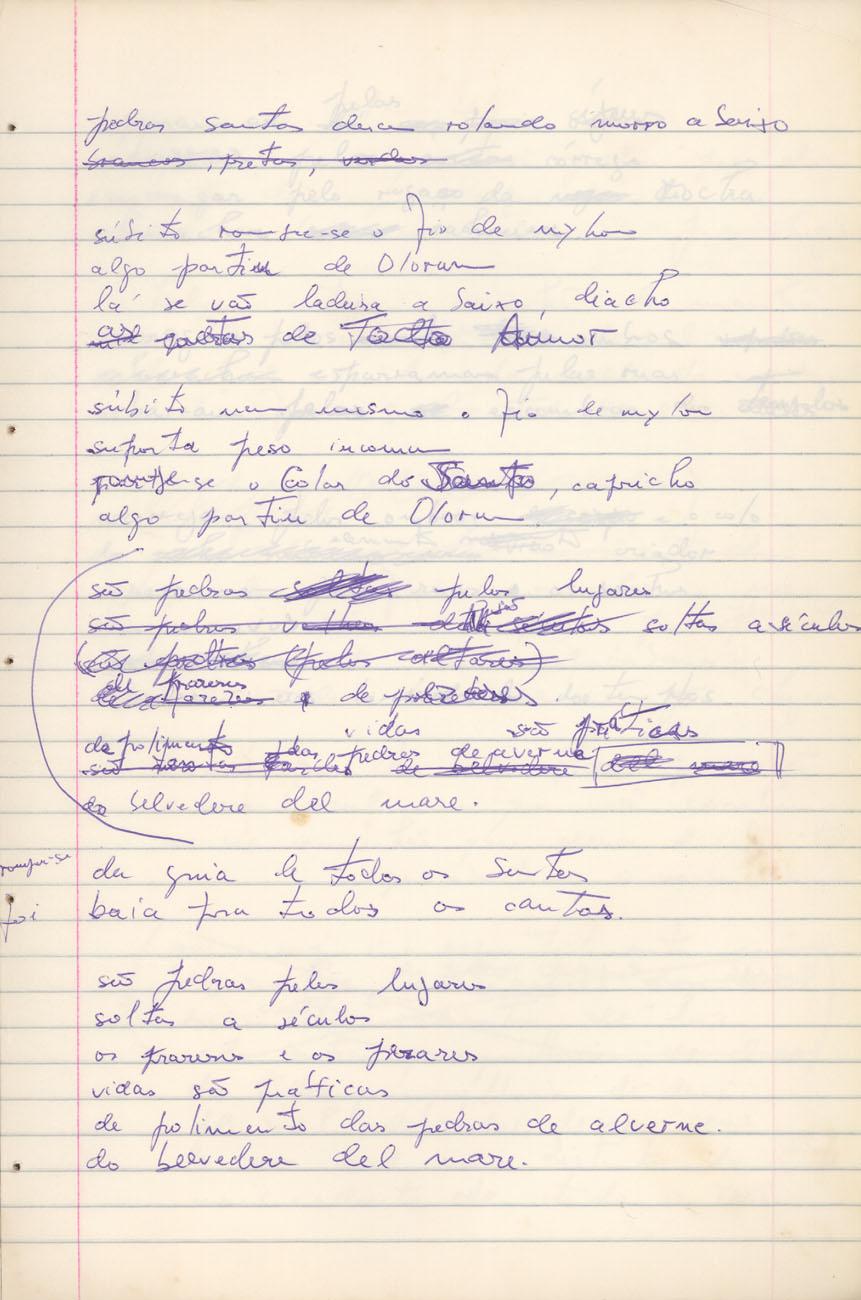 pedras santas descem rolando morro a baixo
brancas, pretas, verdes
súbito rompe-se o fio de nylon
algo partiu de Olorum
lá se vão ladeira a baixo, diacho
pedras de
súbito nem mesmo o fio de nylon
suporta peso incomum
parte-se o colar do Santo, capricho
algo partiu de Olorum
são pedras soltas pelos lugares
são pedras soltas a séculos
são pedras (pelos altares)
de prazeres e de
vidas são práticas
de polimento das pedras de alverne
são de belvedere del mare
do belvedere del mare.
rompe-se da guia de todos os santos
foi baía pra todos os cantos.
são pedras pelos lugares
soltas a séculos
os prazeres e os pezares
vidas são práticas
de polimento das pedras de alverne.
do belvedere del mare.